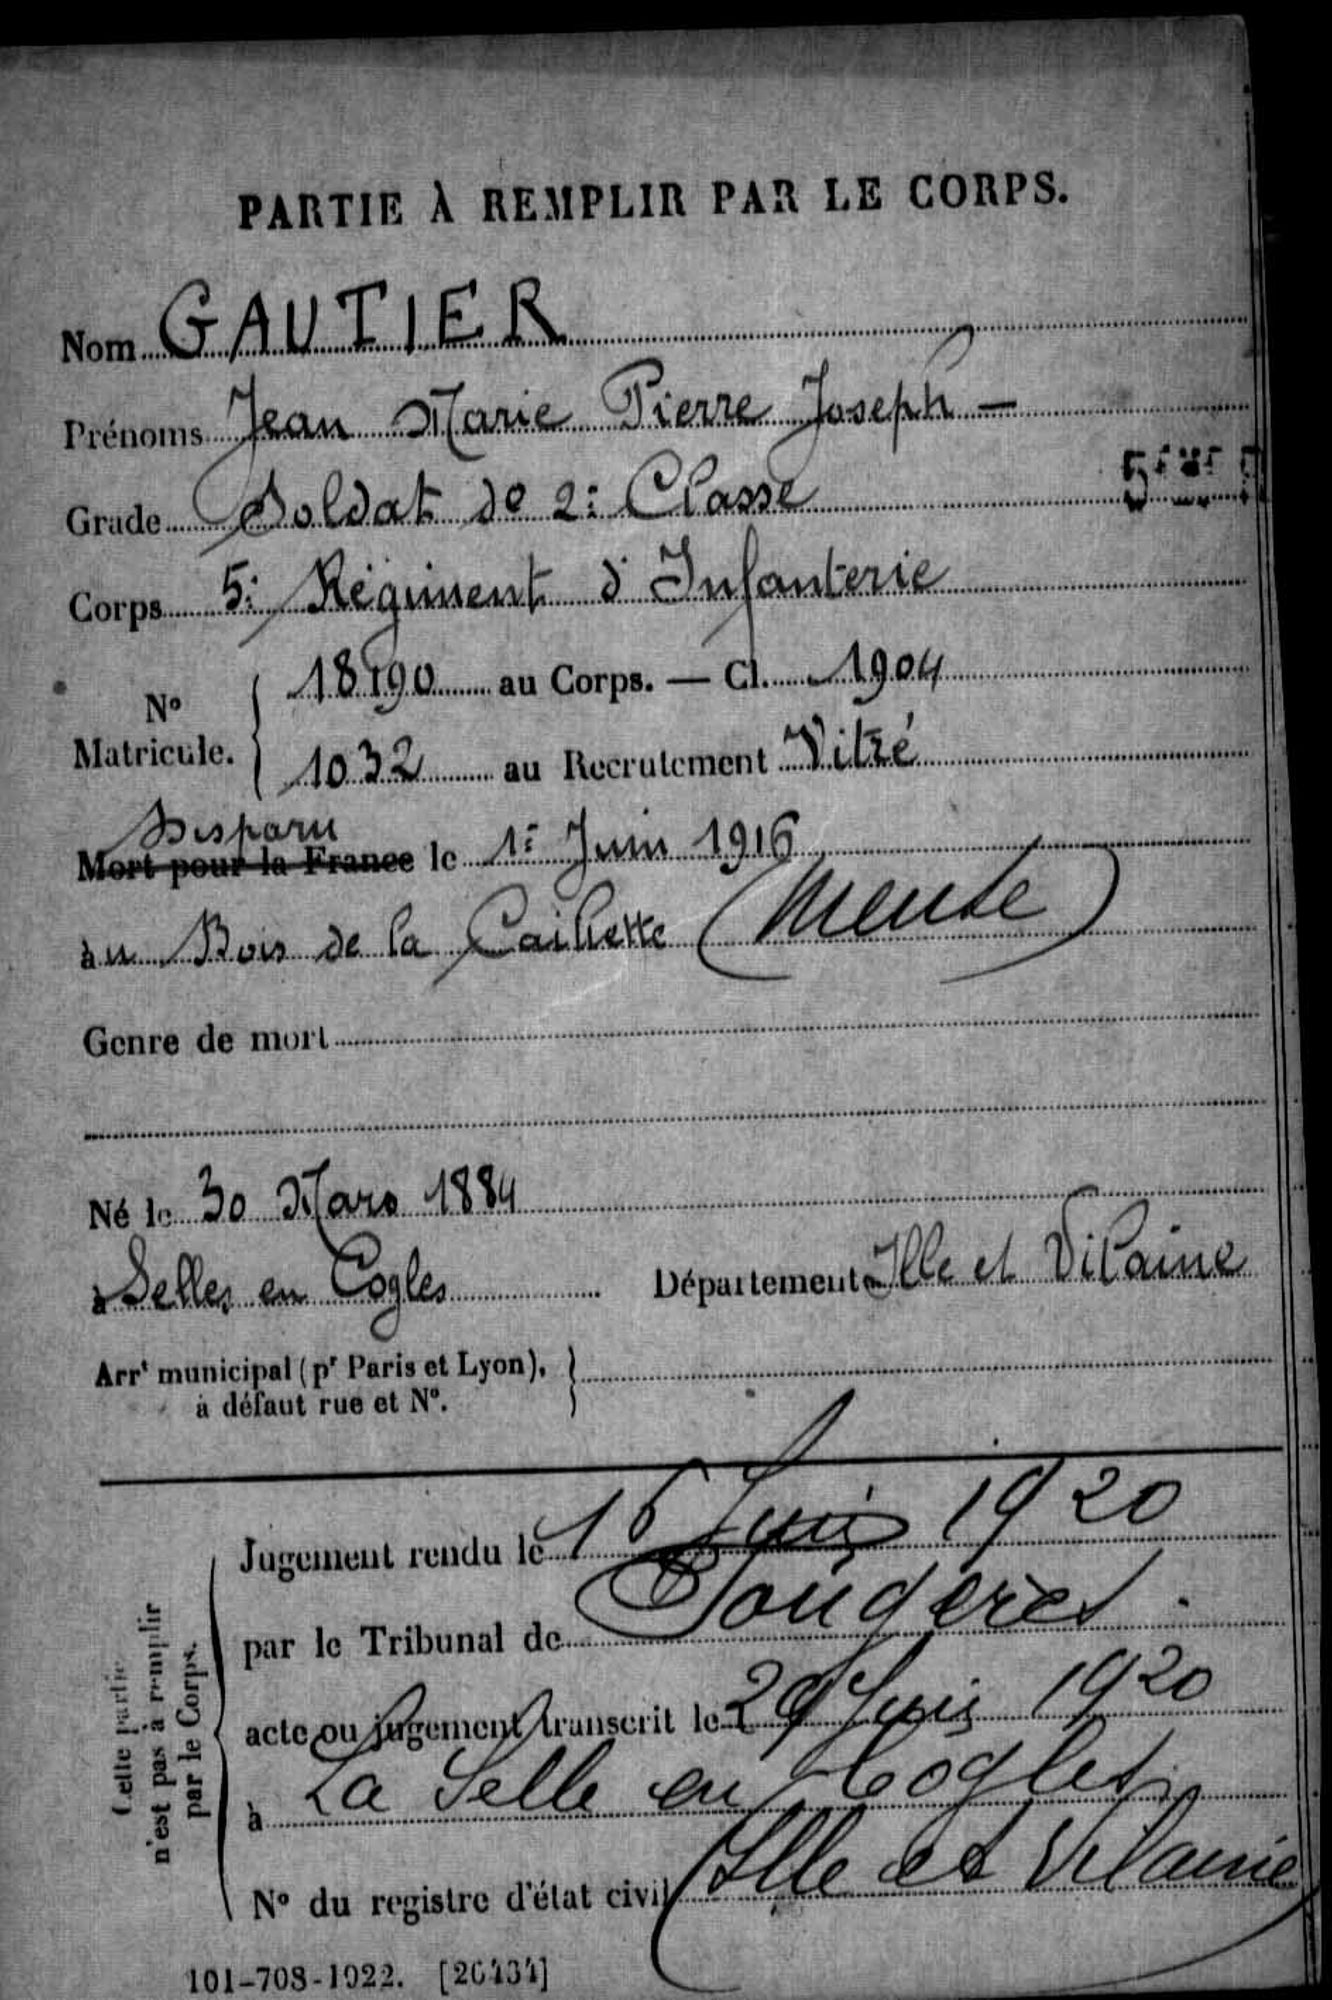 PARTIE À REMPLIR PAR LE CORPS.
Nom GAUTIER
Prénoms Jean Marie Pierre Joseph —
Grade Soldat de 2: Classe
Corps 5: Régiment d'Infanterie
N° Matricule. 18190 au Corps. — Cl. 1904
1032 au Recrutement Vitré
Disparu
Mort pour la France le 1: Juin 1916
àu Bois de la Caillette (Meuse)
Genre de mort
Né le 30 Mars 1884
à Selles en Cogles Département Ille et Vilaine
Arrt municipal (pr Paris et Lyon),
à défaut rue et N°.
Cette partie
n'est pas à remplir
par le Corps.
Jugement rendu le 16 Juin 1920
par le Tribunal de Fougères.
acte ou jugement transcrit le 29 Juin 1920
à La Selle en Cogles
N° du registre d'état civil Ille et Vilaine
101-708-1922. [26434]